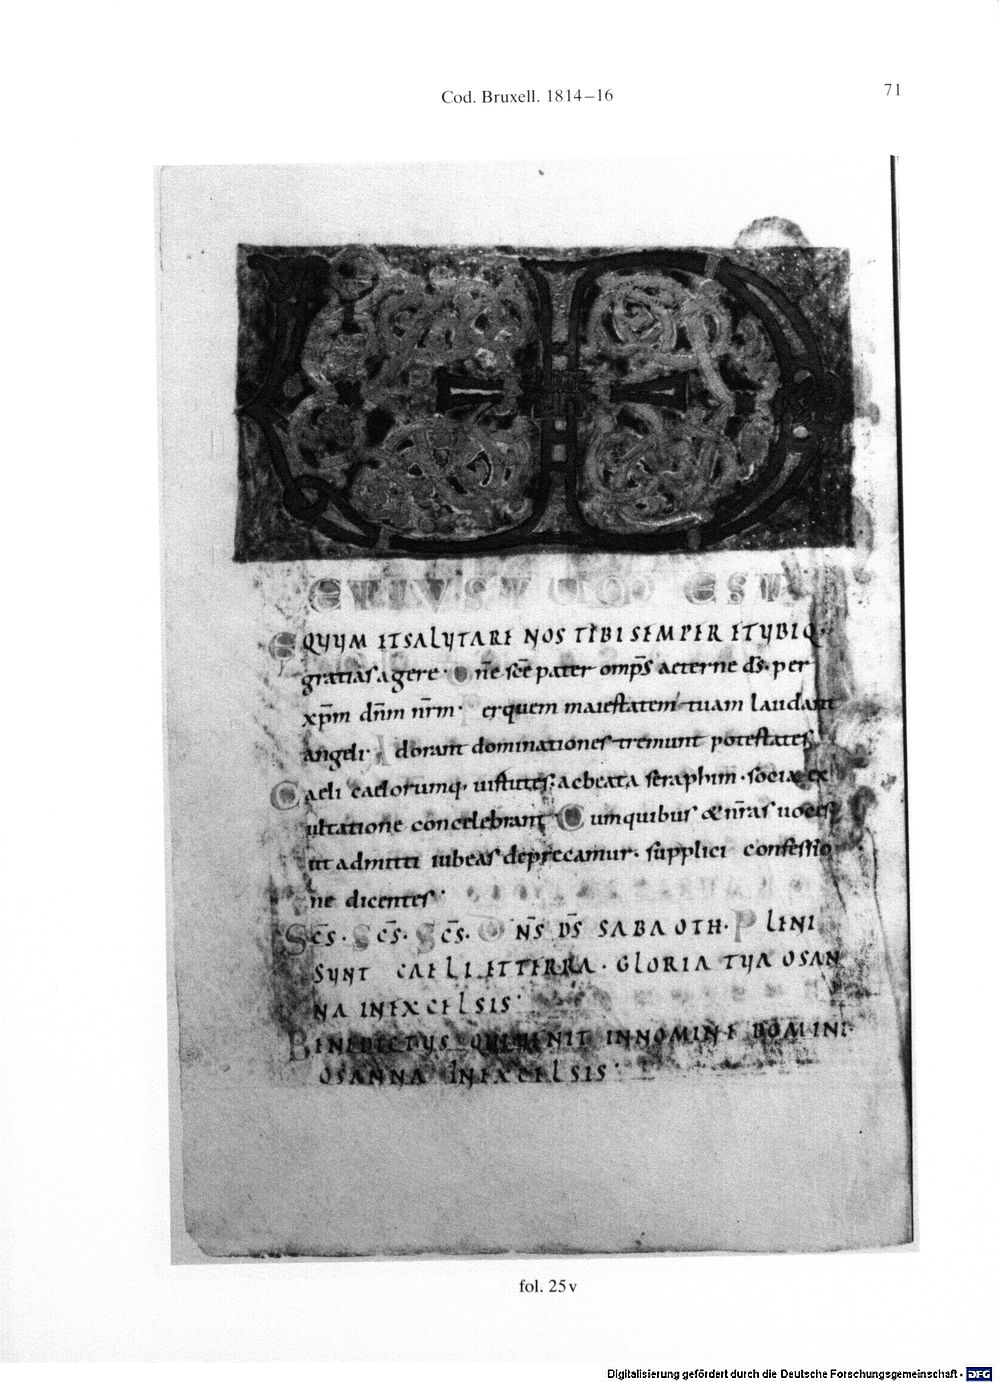 Cod. Bruxell. 1814–16
71
VD
ET IUSTUM EST
EQUUM ET SALUTARE NOS TIBI SEMPER ET UBIQ·
gratias agere· Dn̄e sc̄e pater omp̄s aeterne d̄s· per
xp̄m dn̄m nr̄m· Perquem maiestatem tuam laudant
angeli· Adorant dominationes tremunt potestates
Caeli caelorumq, uirtutes. acbeata seraphim· socia ex
ultatione concelebrant Cumquibus & nr̄as uoces
ut admitti iubeas deprecamur· supplici confessio
ne dicentes·
Sc̄s· Sc̄s· Sc̄s· DN̄S DS̄ SABAOTH· PLENI
SUNT CAELI ET TERRA· GLORIA TUA OSAN
NA IN EXCELSIS·
BENEDICTUS QUI UENIT IN NOMINE DOMINI·
OSANNA IN EXCELSIS·
fol. 25v
Digitalisierung gefördert durch die Deutsche Forschungsgemeinschaft - DFG